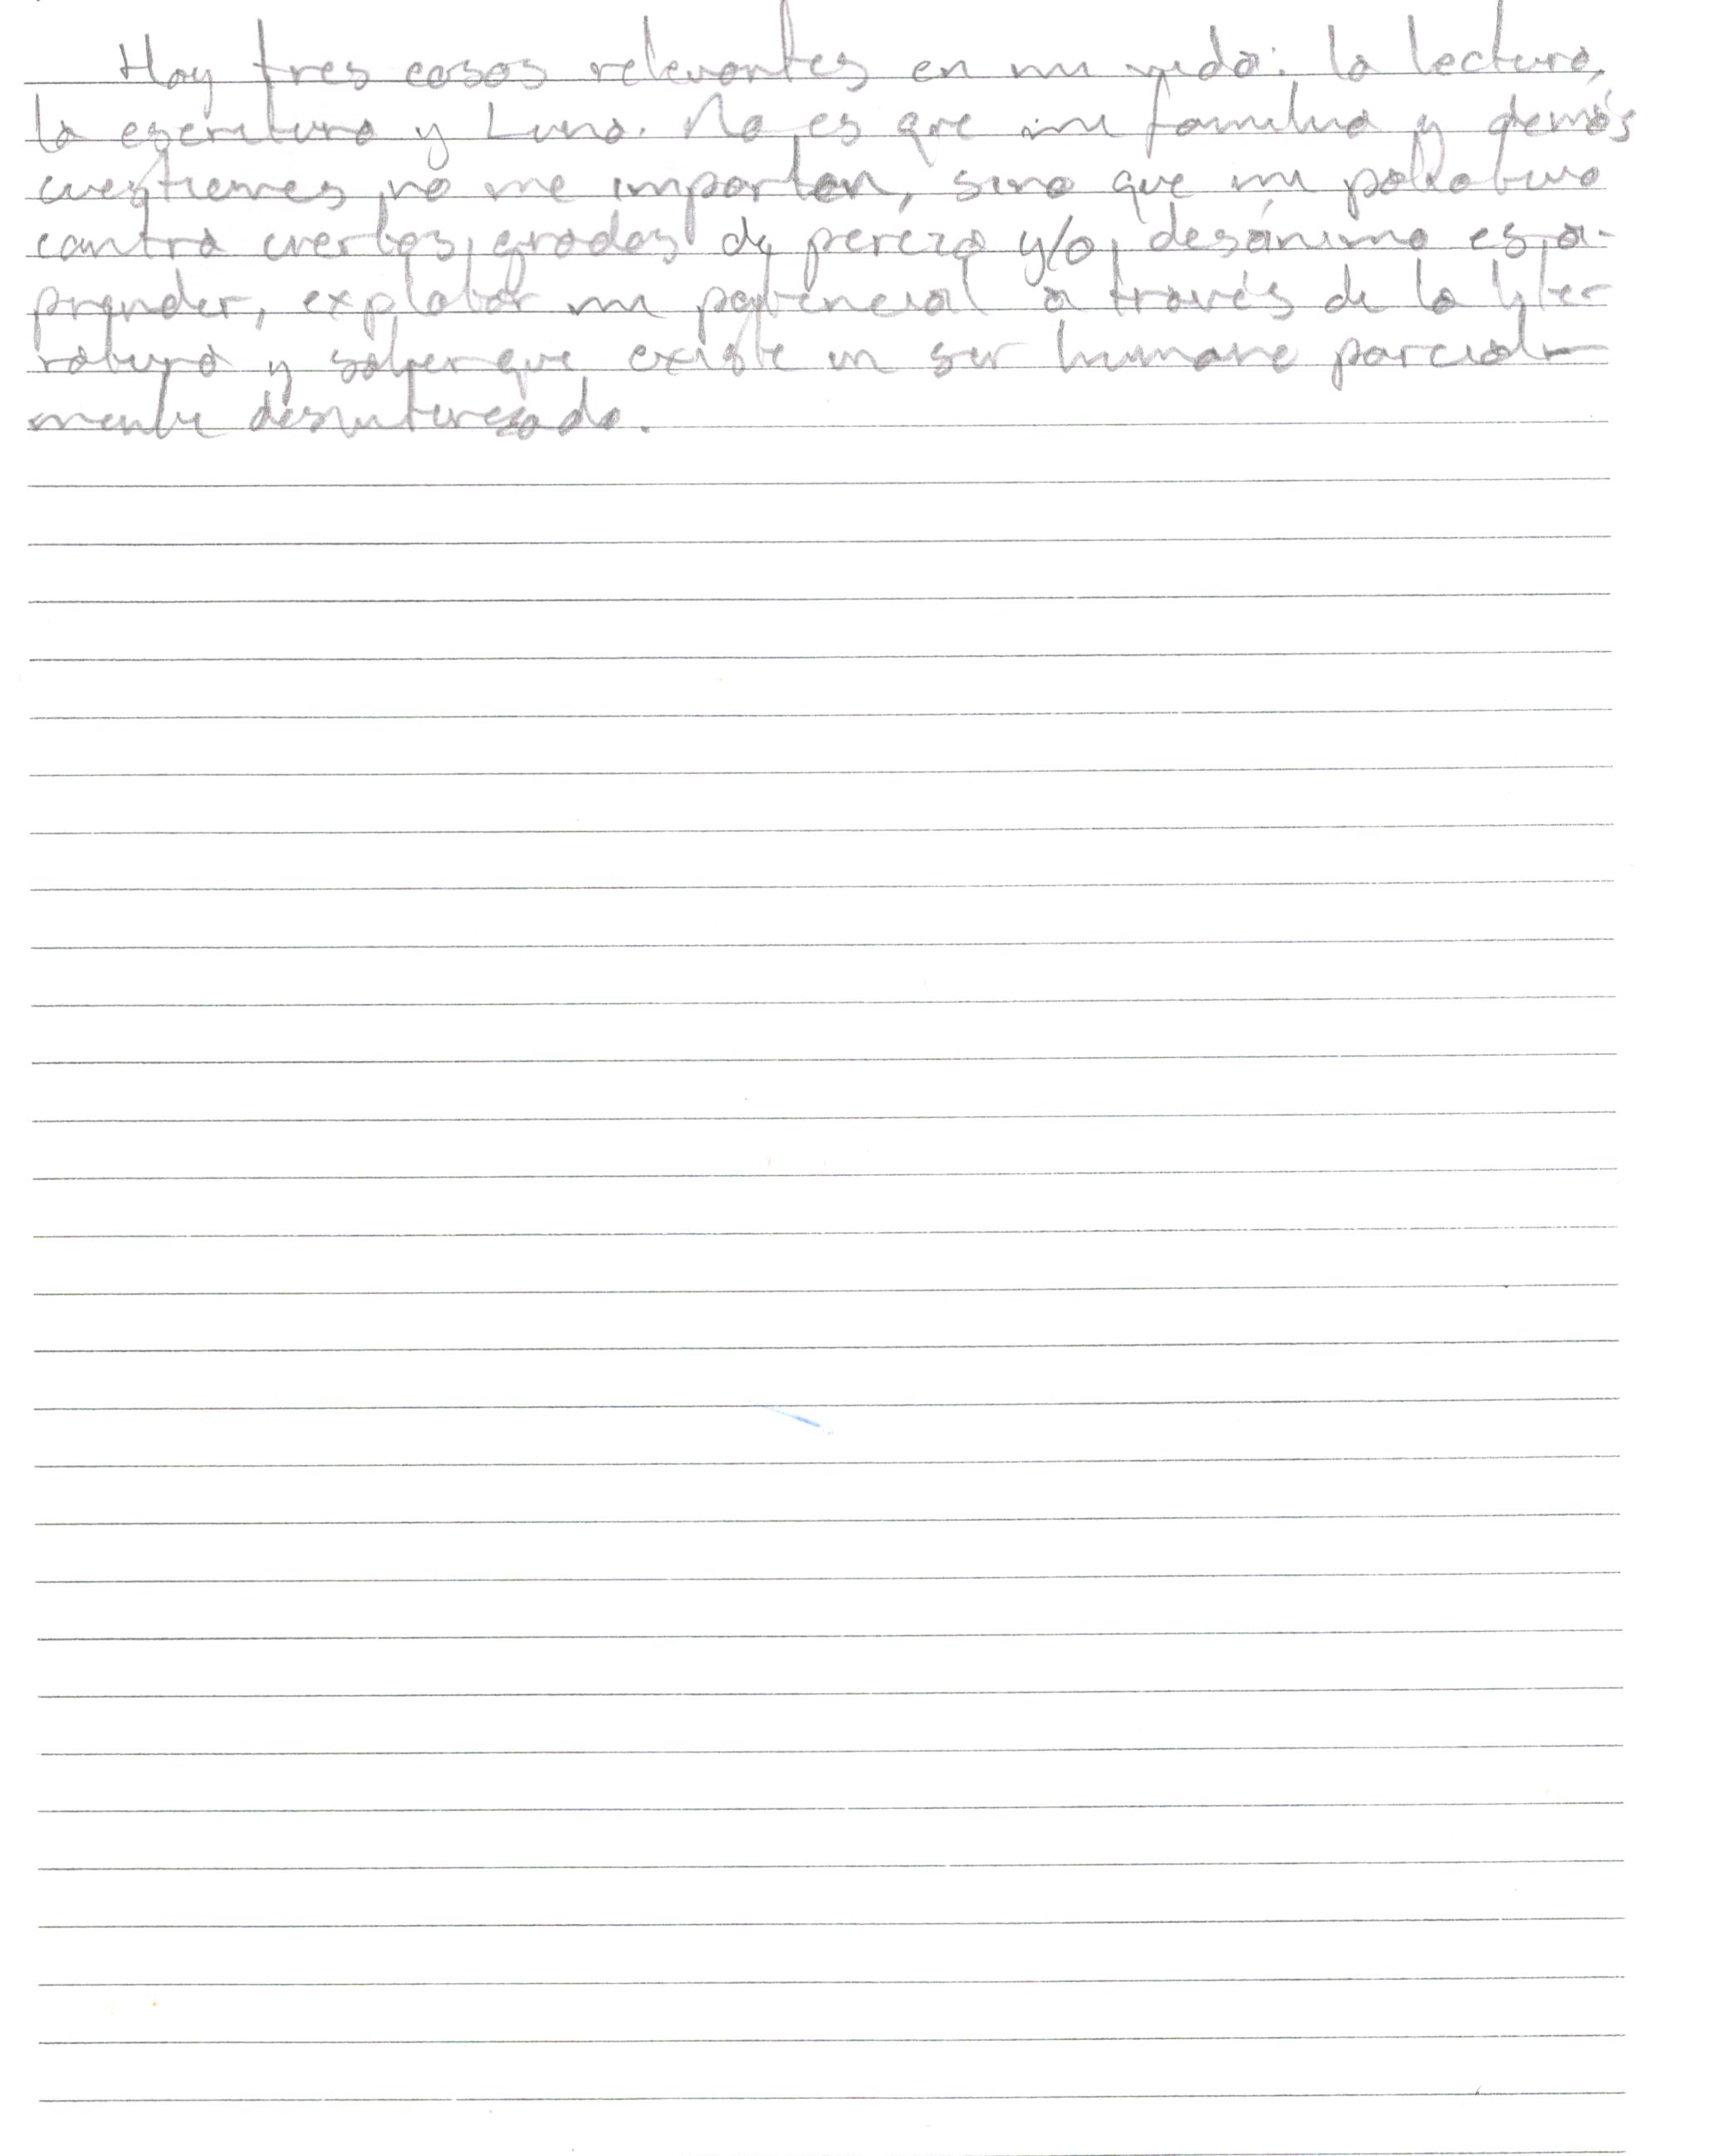 Hay tres cosas relevantes en mi vida: la lectura,
la escritura y Luna. No es que mi familia y demás
cuestiones no me importan, sino que mi paliativo
contra ciertos grados de pereza y/o desánimo es a-
prender, explotar mi potencial a través de la lite-
ratura y saber que existe un ser humano parcial-
mente desinteresado.